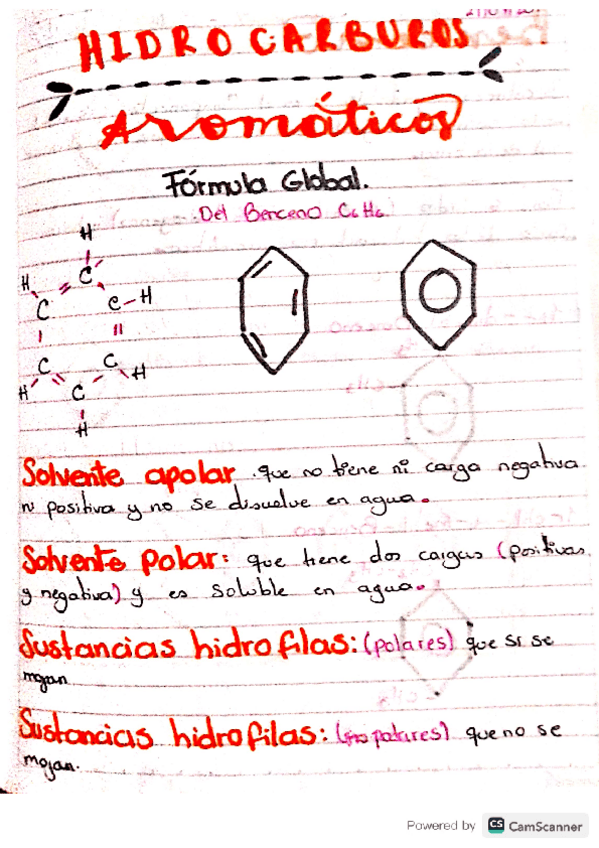 HIDROCARBUROS
Aromáticos
Fórmula Global.
Del Benceno C6H6
H
H C
C C-H
C C
H C H
H
Solvente apolar que no tiene ni carga negativa
ni positiva y no se disuelve en agua.
Solvente polar: que tiene dos cargas (positivas
y negativa) y es soluble en agua.
Sustancias hidrofilas: (polares) que si se
mojan
Sustancias hidrofilas: (no polares) que no se
mojan.
Powered by CS CamScanner